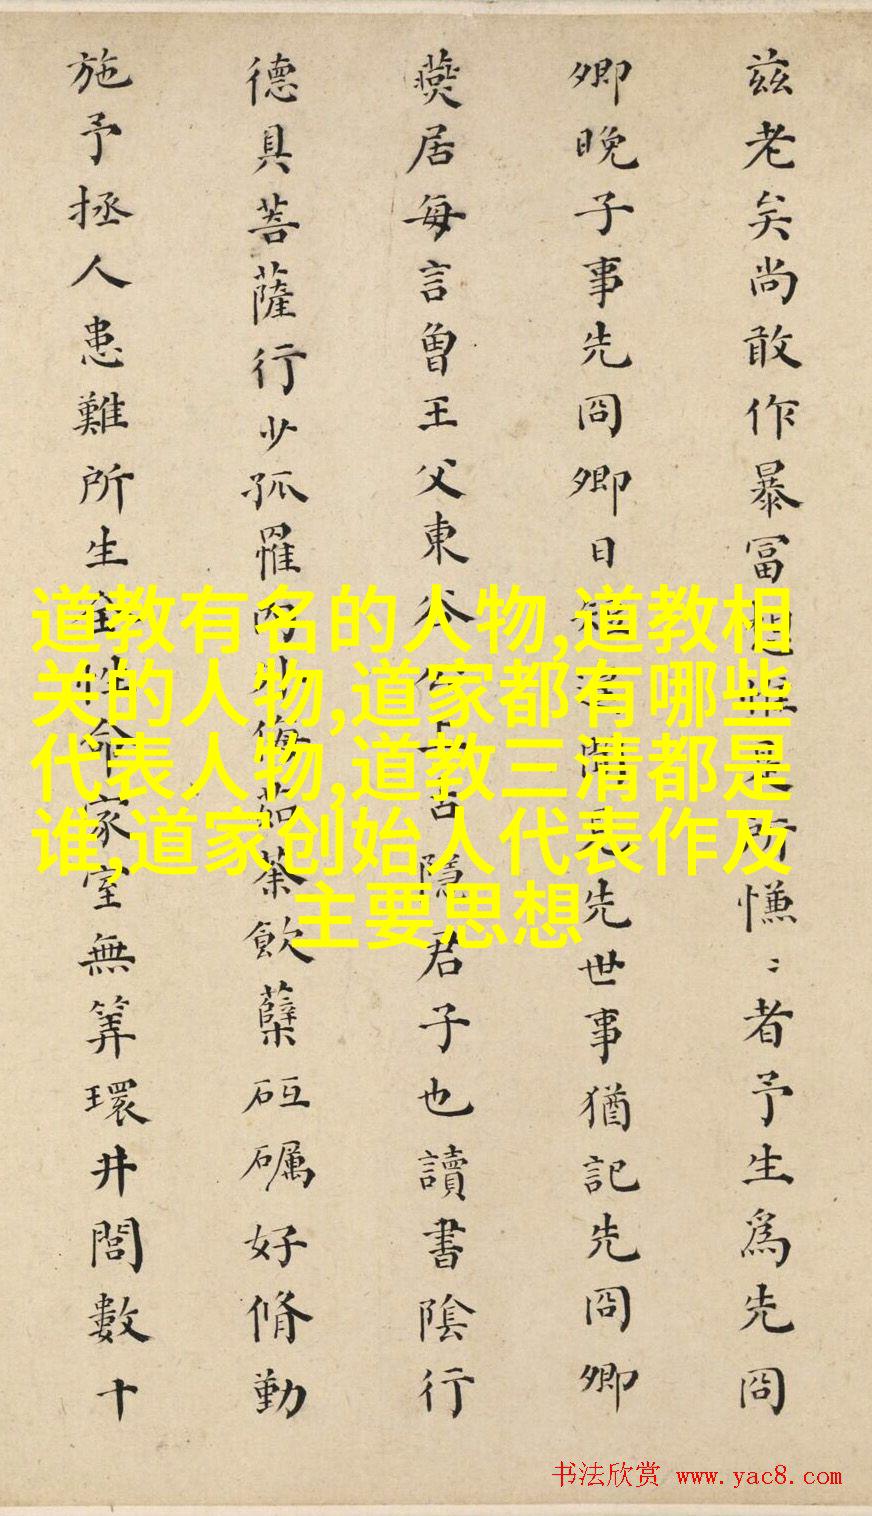 兹老矣尚敢作暴富是所慊〻者予生為先冏
卿晚子事先冏卿日短聞見先世事猶記先冏卿
燕居每言曾王父東谷公隱君子也讀書陰行
德具菩薩行少孤罹內外侮茹荼飲蘖砥礪好脩勤
施予拯人患難所生全性命家室無筭環井閭數十
道教有名的人物,道教相
关的人物,道家都有哪些
代表人物,道教三清都是
谁,道家创始人代表作及
主要思想
书法欣赏 www.yac8.com